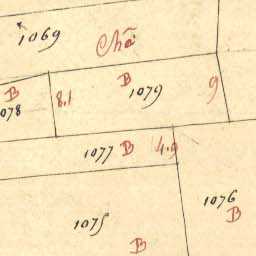 1069
Châ
B
1078
8.1
B
1079
9
1077 B 4.9
1076
B
1075
B